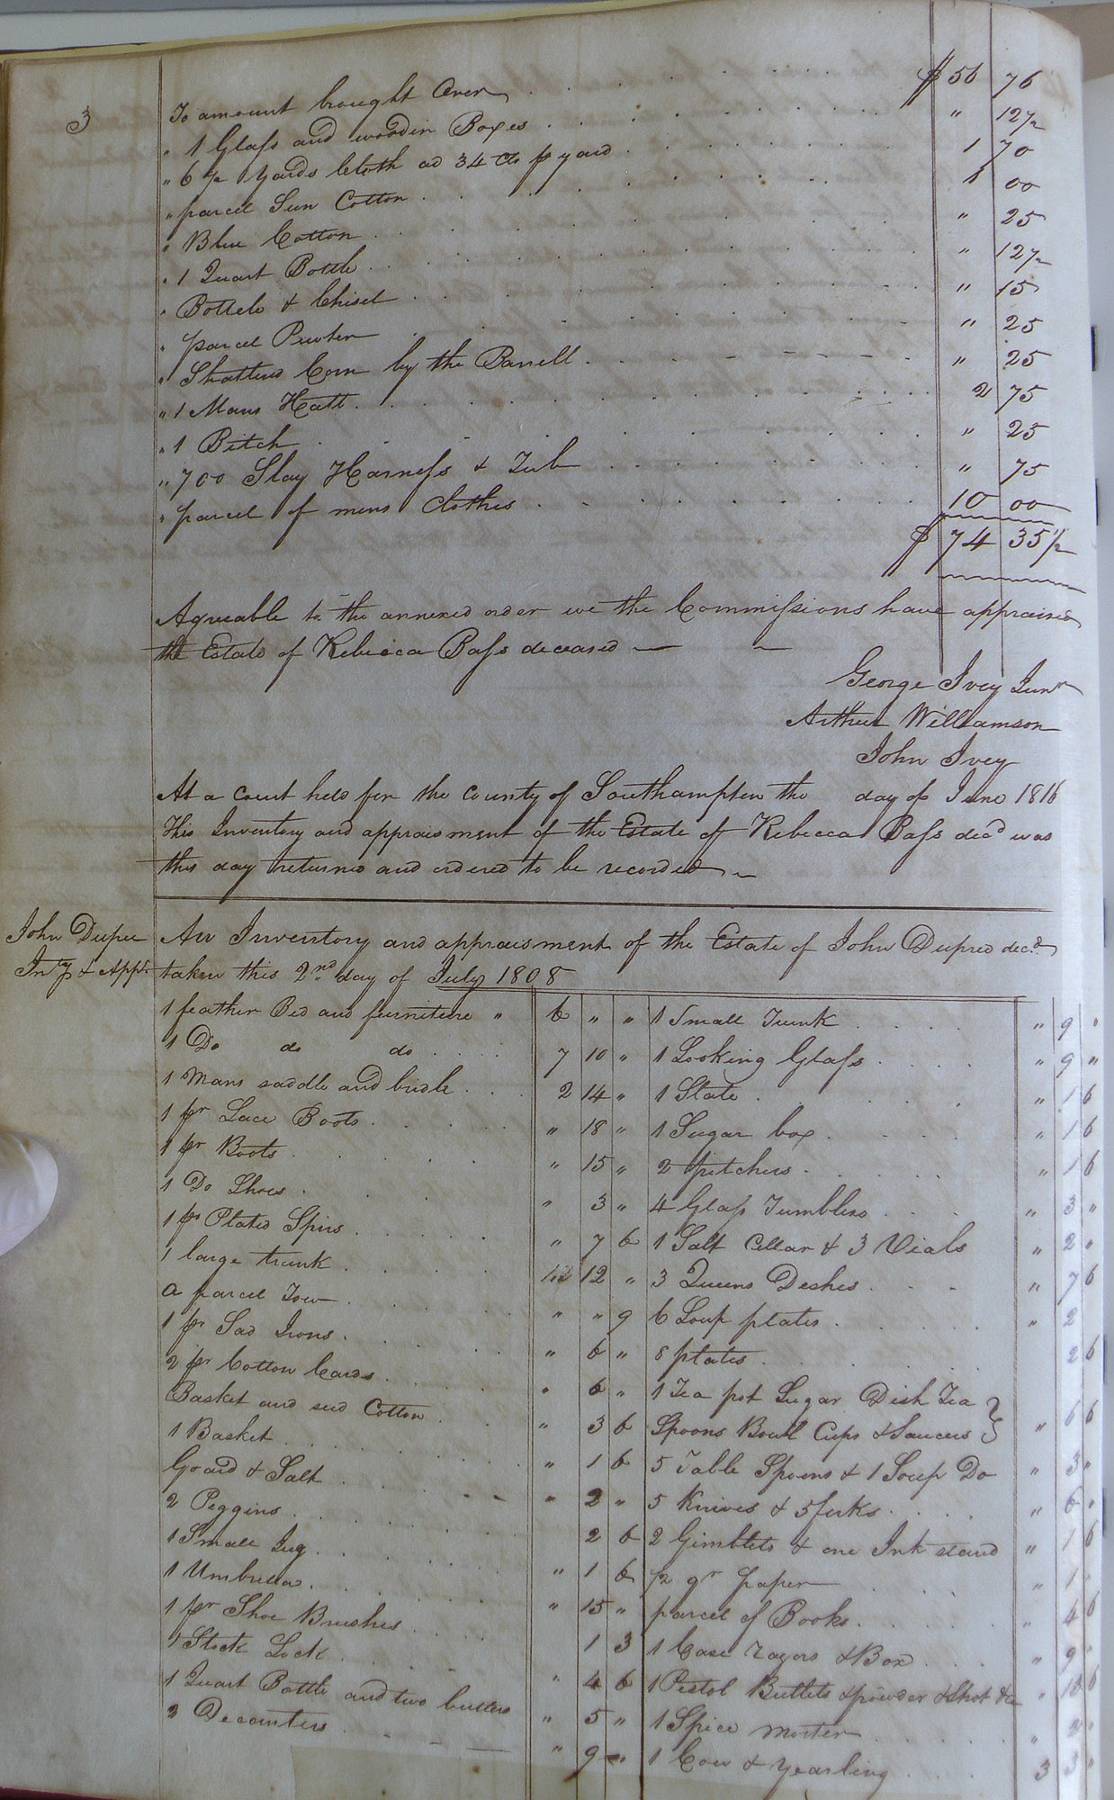 3
To amount brought Over $ 56 76
" 1 Glass and wooden Boxes " 12½
" 6 ½ Yards Cloth ad 34 cts pr yard 1 70
" parcel Seen Cotton 1 00
" Blue Cotton " 25
" 1 Quart Bottle " 12½
" Bottele & Chisel " 15
" parcel Pewter " 25
" Shattered Corn by the Barrell " 25
" 1 Mans Hatt 2 75
" 1 Pitch " 25
" 700 Slay Harness & Tub " 75
" parcel of mens Clothes 10 00
$ 74 35½
Agreeable to the annexed order we the Commissions have appraised
the Estate of Rebecca Bass deceased
George Ivey Junr
Arthur Williamson
John Ivey
At a Court held for the County of Southampton the day of June 1816
This Inventory and appraisment of the Estate of Rebecca Bass decd was
this day returned and ordered to be recorded
John Dupree
Inty & Appt
An Inventory and appraisment of the Estate of John Dupree decd
taken this 2nd day of July 1808
1 feather Bed and furniture " 6 " " 1 Small Trunk " 9 "
1 Do do do 7 10 " 1 Looking Glass " 9 "
1 Mans saddle and bridle 2 14 " 1 Slate " 1 6
1 pr Lace Boots " 18 " 1 Sugar box " 1 6
1 pr Boots " 15 " 2 pitchers " 1 6
1 Do Shoes " 3 " 4 Glass Tumblers " 3 "
1 pr Plated Spurs " 7 6 1 Salt Cellar & 3 Vials " 2 "
1 large trunk 12 " 3 Queens Deshes " 7 6
a parcel Tow " " 9 6 Soup plates " 2
1 pr Sad Irons " 6 " 8 plates 2 6
2 pr Cotton Cards " 6 " 1 Tea pot Sugar Dish Tea
Basket and seed Cotton " 3 6 Spoons Bowl Cups & Saucers " 6 6
1 Basket " 1 6 5 Table Spoons & 1 Soup Do " 3 "
Goard & Salt " 2 " 5 Knives & 5 forks " 6 "
2 Peggins 2 6 2 Gimblets & one Ink stand " 1 6
1 Small Jug " 1 6 ½ qr paper " 1 "
1 Umbrella " 15 " parcel of Books " 4 6
1 pr Shoe Brushes 1 3 1 Case razors & Box " 9 "
1 Stock Lock " 4 6 1 Pistol Bullets & powder & Shot &c " 18 6
1 Quart Bottle and two " 5 " 1 Spice morter " 2 "
2 Decanters " 9 " 1 Cow & yearling 3 3 "